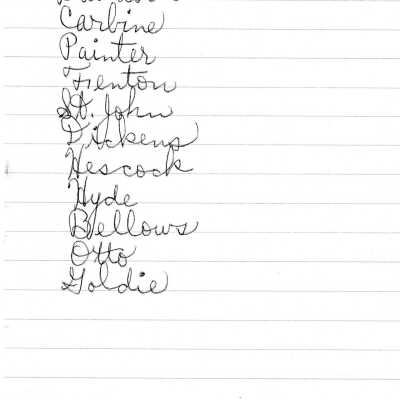 Carbine
Painter
Fenton
St. John
Dickens
Hescock
Hyde
Bellows
Otto
Goldie